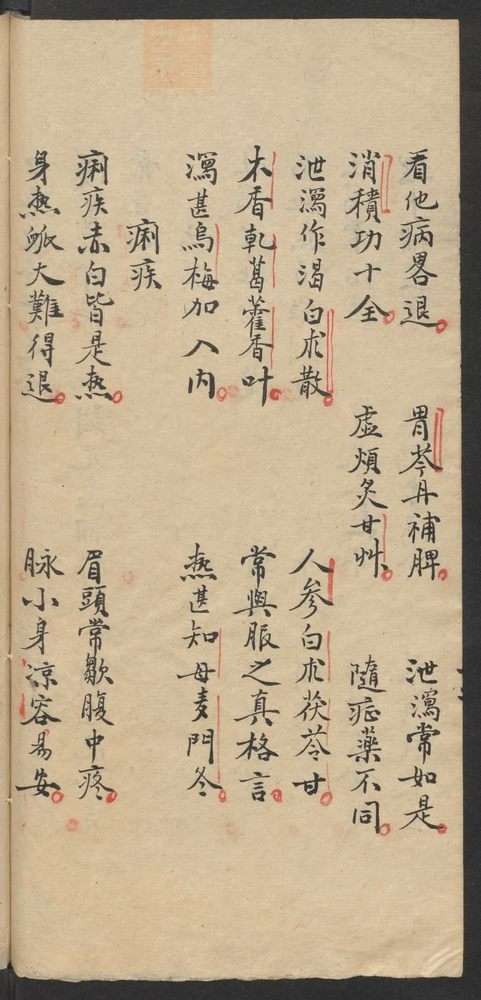 看他病畧退 胃苓丹補脾 泄瀉常如是
消積功十全 虛煩炙甘艸 隨症藥不同
泄瀉作渴白朮散 人參白朮茯苓甘
木香乾葛藿香叶 常與服之真格言
瀉甚烏梅加入內 熱甚知母麦門冬
痢疾
痢疾赤白皆是熱 眉頭常皺腹中疼
身熱脈大難得退 脉小身凉容易安